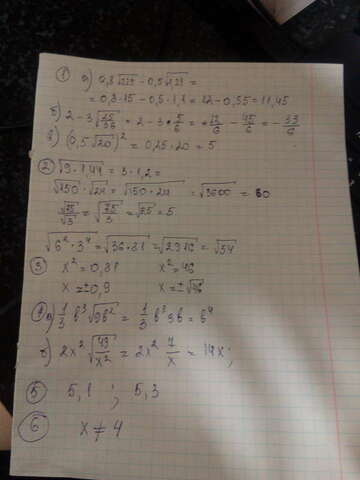 ① а) 0,8√225 - 0,5√1,21 =
= 0,8·15 - 0,5·1,1 = 12 - 0,55 = 11,45
б) 2-3√25/36 = 2-3·5/6 = 12/6 - 45/6 = -33/6
в) (0,5√20)² = 0,25·20 = 5
② √9·1,44 = 3·1,2 =
√150·√24 = √150·24 = √3600 = 60
√75/√3 = √75/3 = √25 = 5
√6²·3⁴ = √36·81 = √2916 = √54
③ x² = 0,81 x² = 46
x = ±0,9 x = ±√46
④ а) 1/3 b³√9b² = 1/3 b³ 9b = b⁴
б) 2x² √49/x² = 2x² 7/x = 14x;
⑤ 5,1 ; 5,3
⑥ x ≠ 4